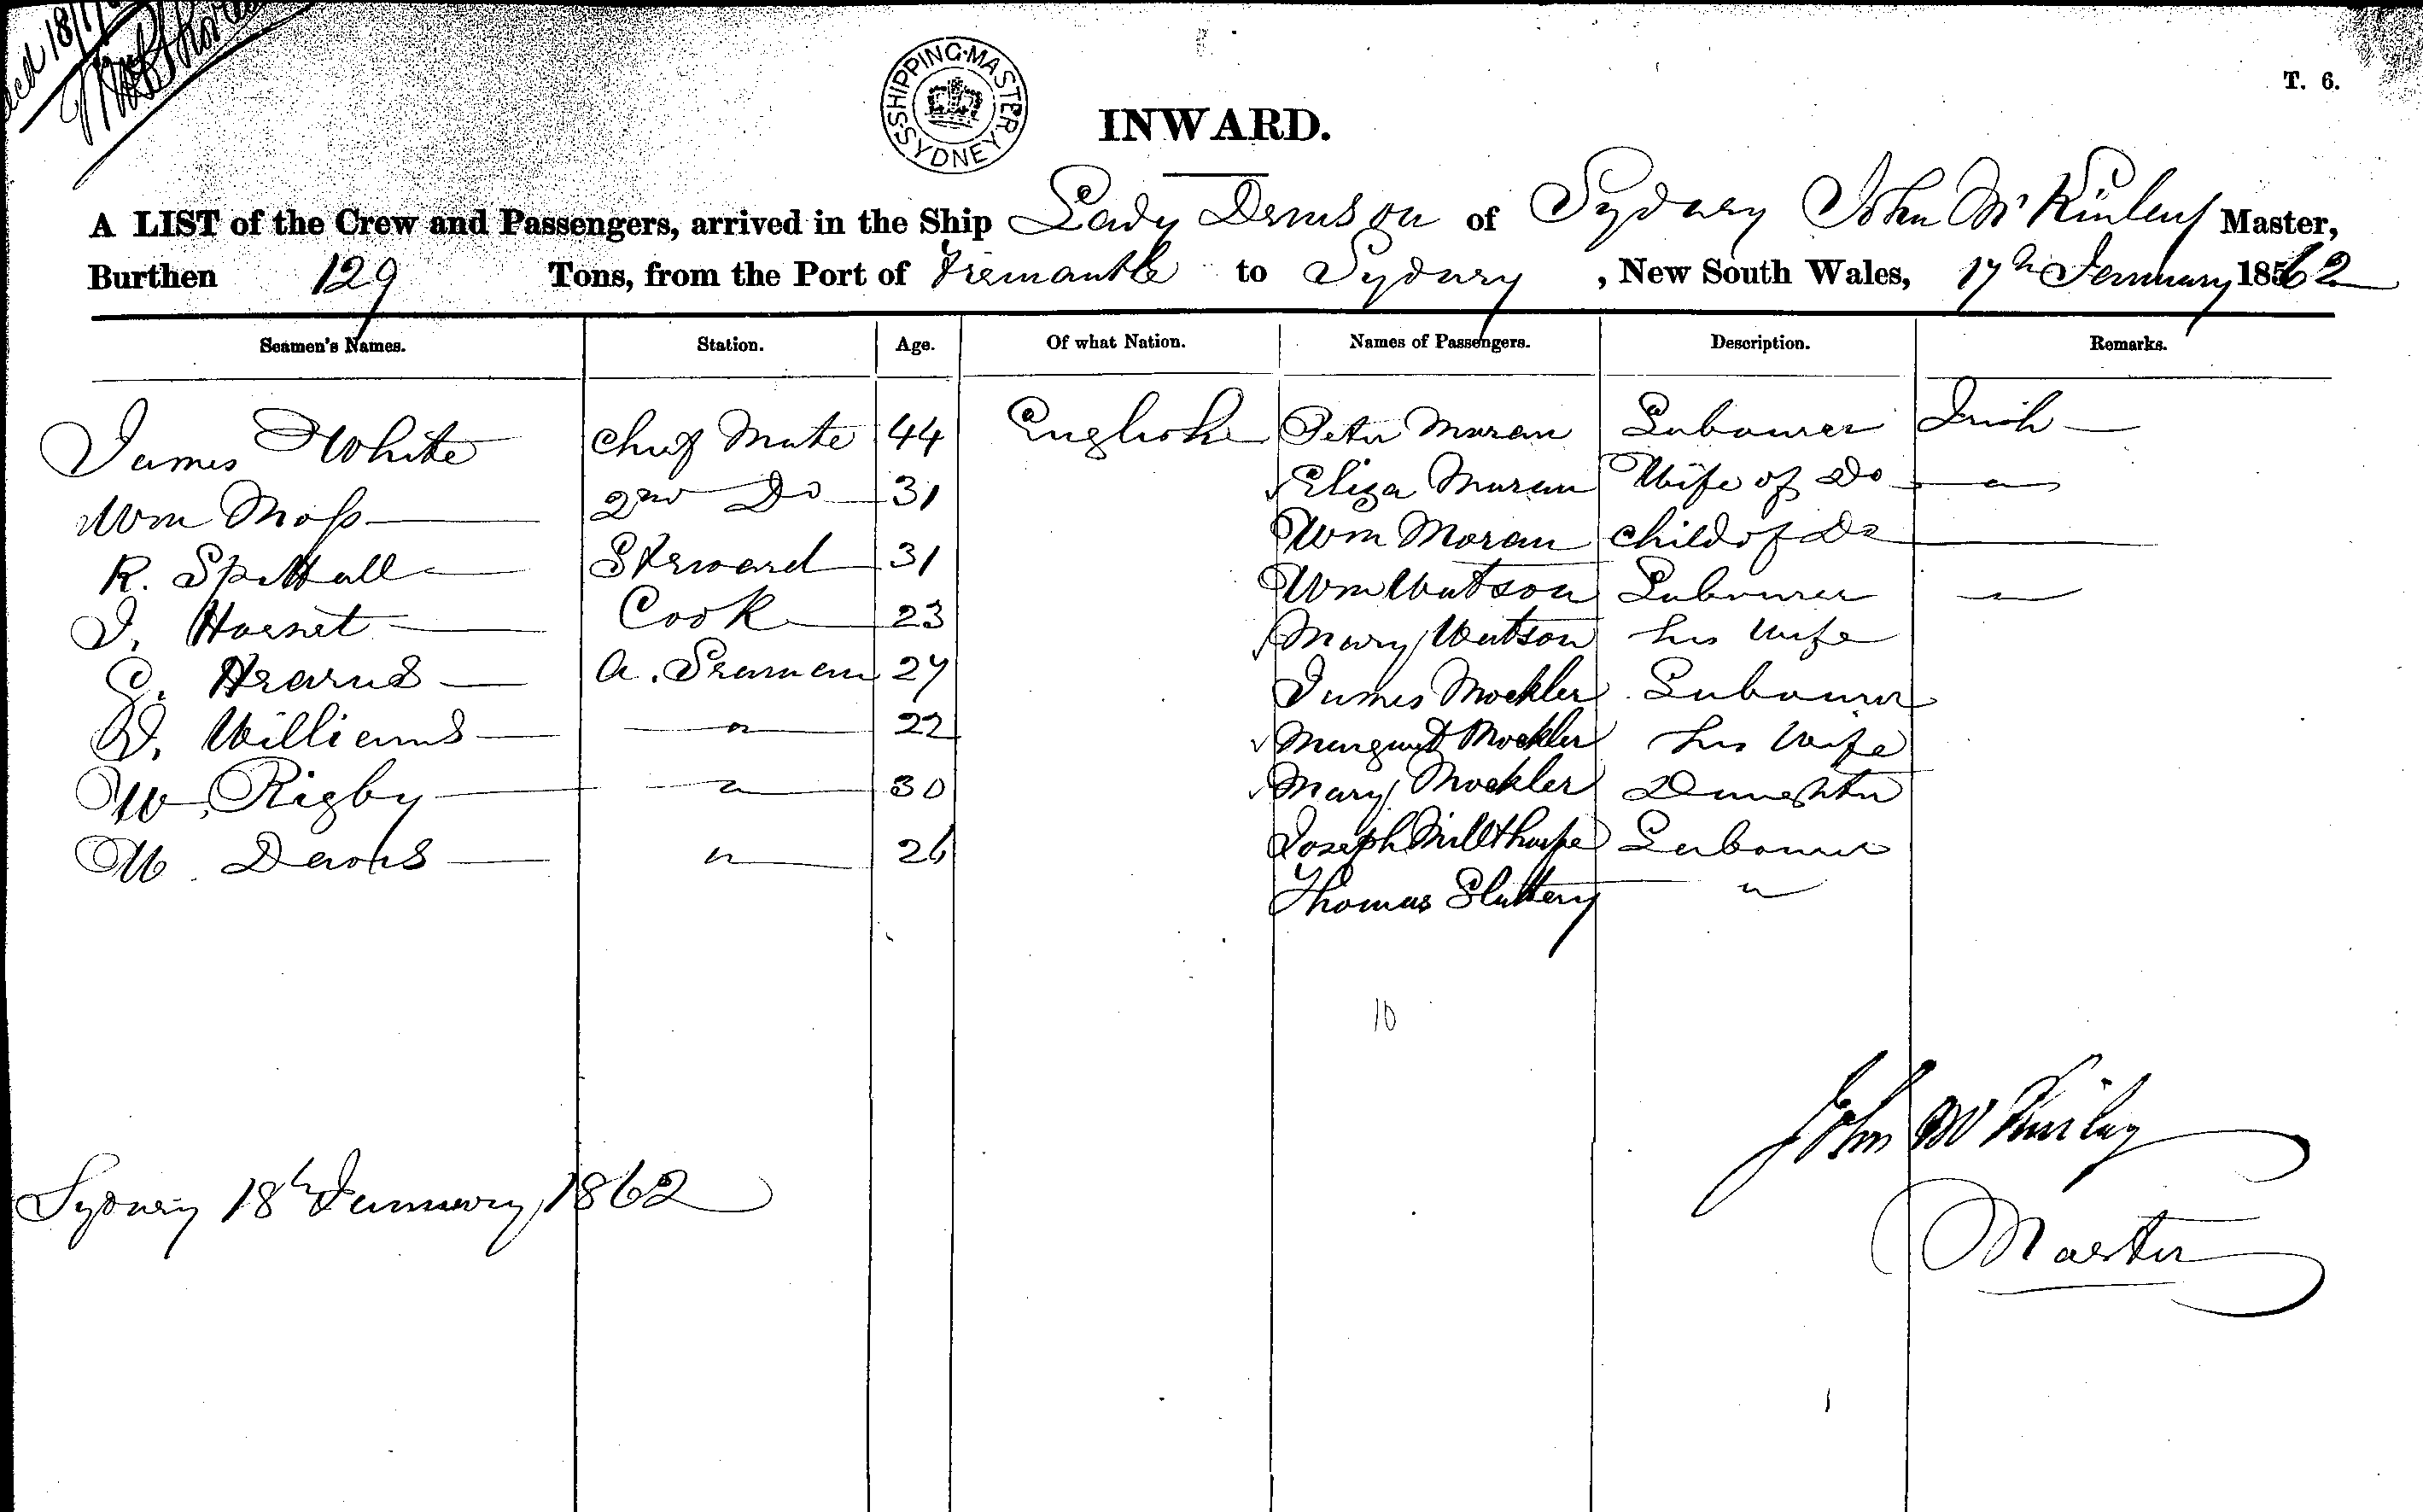 T. 6.
SHIPPING MASTER SYDNEY
INWARD.
A LIST of the Crew and Passengers, arrived in the Ship Lady Denison of Sydney John McKinley Master,
Burthen 129 Tons, from the Port of Fremantle to Sydney , New South Wales, 17th January 1862
Seamen's Names. Station. Age. Of what Nation. Names of Passengers. Description. Remarks.
James White Chief Mate 44 English Peter Moran Labourer Irish
Wm Moss 2nd Do 31 Eliza Moran Wife of Do "
R. Spittall Steward 31 Wm Moran Child of Do
J. Hornet Cook 23 Wm Watson Labourer "
Hearns A. Seaman 27 Mary Watson his Wife
Williams " 22 James Mockler Labourer
W. Rigby " 30 Margaret Mockler his Wife
W. " 26 Mary Mockler Daughter
Joseph Millthorpe Labourer
Thomas Slattery "
10
John McKinley
Sydney 18th January 1862
Master